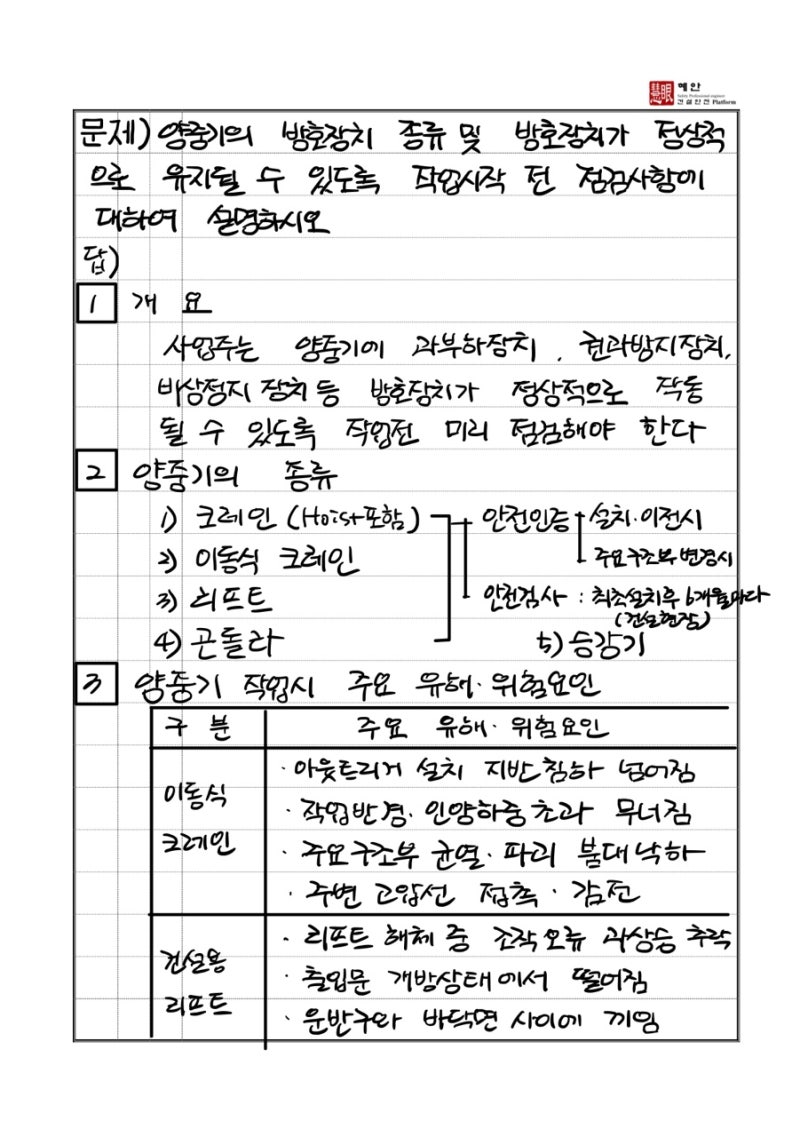 慧眼 혜안
Safety Professional engineer
건설안전 Platform
문제) 양중기의 방호장치 종류 및 방호장치가 정상적
으로 유지될 수 있도록 작업시작 전 점검사항에
대하여 설명하시오
답)
1 개 요
사업주는 양중기에 과부하장치, 권과방지장치,
비상정지 장치 등 방호장치가 정상적으로 작동
될 수 있도록 작업전 미리 점검해야 한다
2 양중기의 종류
1) 크레인 (Hoist포함) 안전인증 설치·이전시
2) 이동식 크레인 주요구조부 변경시
3) 리프트 안전검사 : 최초설치후 6개월마다
(건설현장)
4) 곤돌라 5) 승강기
3 양중기 작업시 주요 유해·위험요인
구 분 주요 유해·위험요인
이동식 크레인
· 아웃트리거 설치 지반침하 넘어짐
· 작업반경·인양하중초과 무너짐
· 주요구조부 균열·파괴 붐대낙하
· 주변 고압선 접촉·감전
건설용 리프트
· 리프트 해체 중 조작오류 과상승 추락
· 출입문 개방상태에서 떨어짐
· 운반구와 바닥면 사이에 끼임